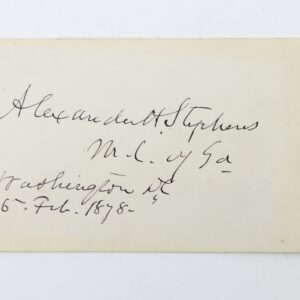 Alexander H. Stephens
M.C. of Ga
Washington DC
5. Feb. 1878-